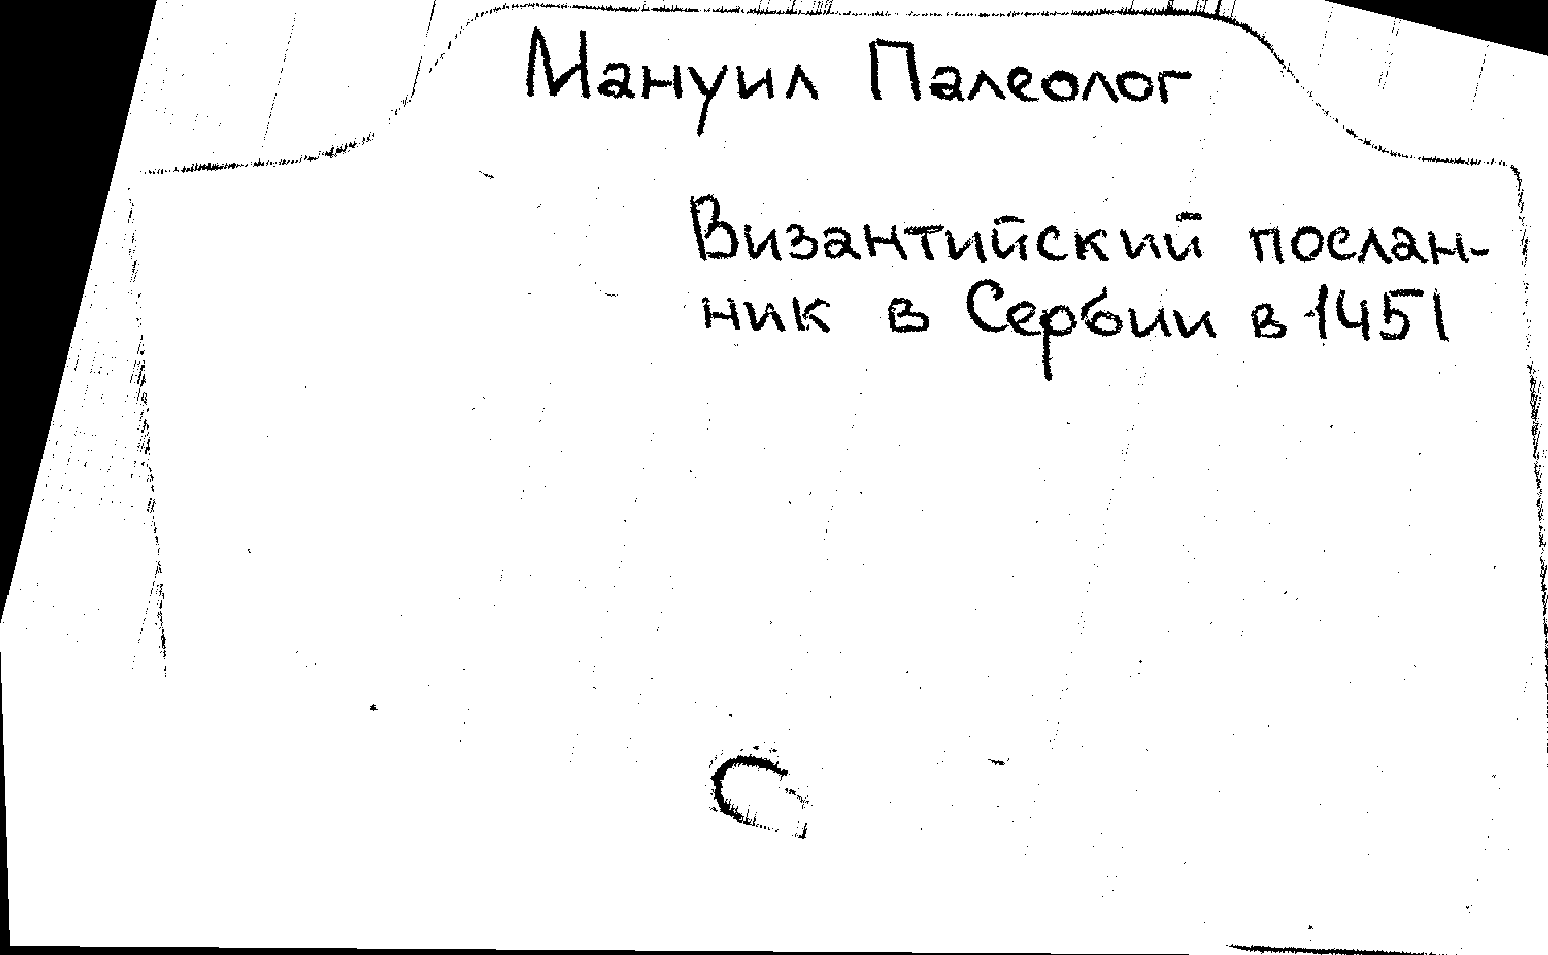 Мануил Палеолог
Византийский послан-
ник в Сербии в 1451